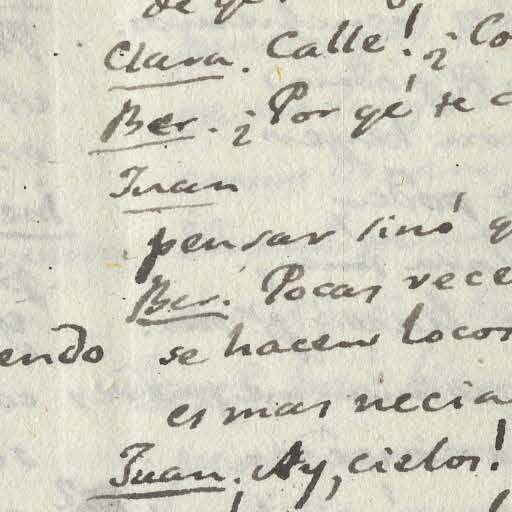 Clara. Calle! ¿Co
Ber. ¿Por qé se
Juan
pensar sinó q
Ber. Pocas vece
endo se hacen locos
es mas necia
Juan. Ay, cielos!